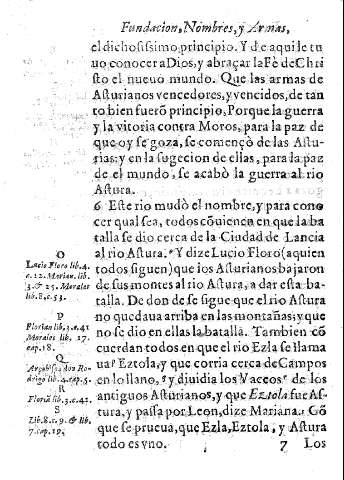 Fundacion, Nombres, y Armas,
el dichosissimo principio. Y de aqui le tu
uo conocer a Dios, y abraçar la Fè de Chri
sto el nueuo mundo. Que las armas de
Asturianos vencedores, y vencidos, de tan
to bien fuerõ principio, Porque la guerra
y la vitoria contra Moros, para la paz de
que oy se goza, se començò de las Astu-
rias: y en la sugecion de ellas, para la paz
de el mundo, se acabò la guerra al rio
Astura.
6 Este rio mudò el nombre, y para cono
cer qual sea, todos cõuienen en que la ba
talla se dio cerca de la Ciudad de Lancia
al rio Astura. º Y dize Lucio Floro (a quien
todos siguen) que los Asturianos bajaron
de sus montes al rio Astura, a dar esta ba-
talla. De donde se sigue que el rio Astura
no quedaua arriba en las montañas; y que
no se dio en ellas la batalla. Tambien cõ
cuerdan todos en que el rio Ezla se llama
ua Eztola, y que corria cerca de Campos
en lo llano, q y diuidia los Vaceos r de los
antiguos Asturianos, y que Eztola fue As-
tura, y passa por Leon, dize Mariana. Cõ
que se prueua, que Ezla, Eztola, y Astura
todo es vno.
7 Los
O
Lucio Floro lib. 4.
c. 12. Marian. lib.
3. c. 25. Morales
lib. 8. c. 53.
P
Florian lib. 3. c. 41
Morales lib. 17.
cap. 18.
Q
Arçobispo don Ro-
drigo lib. 4. cap. 5.
R
Floriã lib. 3. c. 41.
S
Lib. 8. c. 9. & lib.
7. cap. 19.